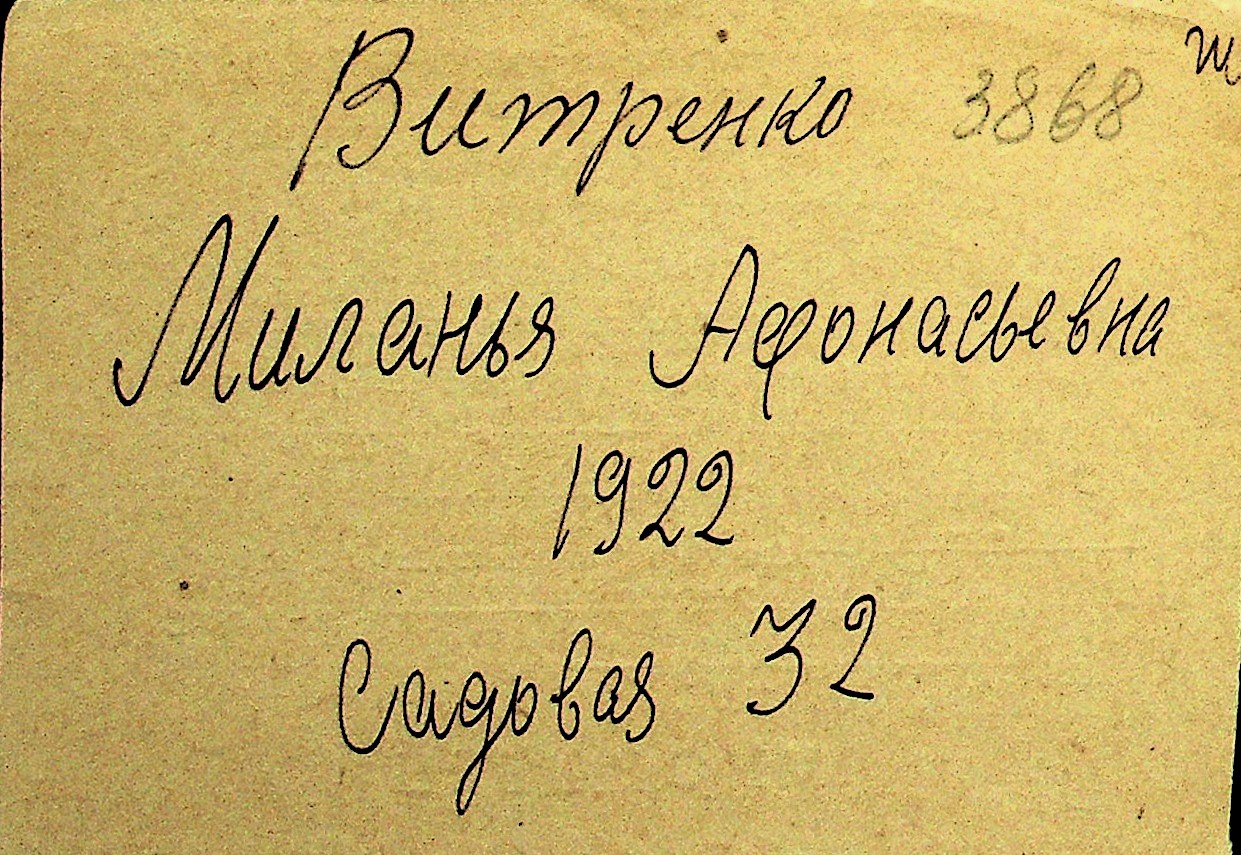 Витренко 3868
Миланья Афонасьевна
1922
Садовая 32